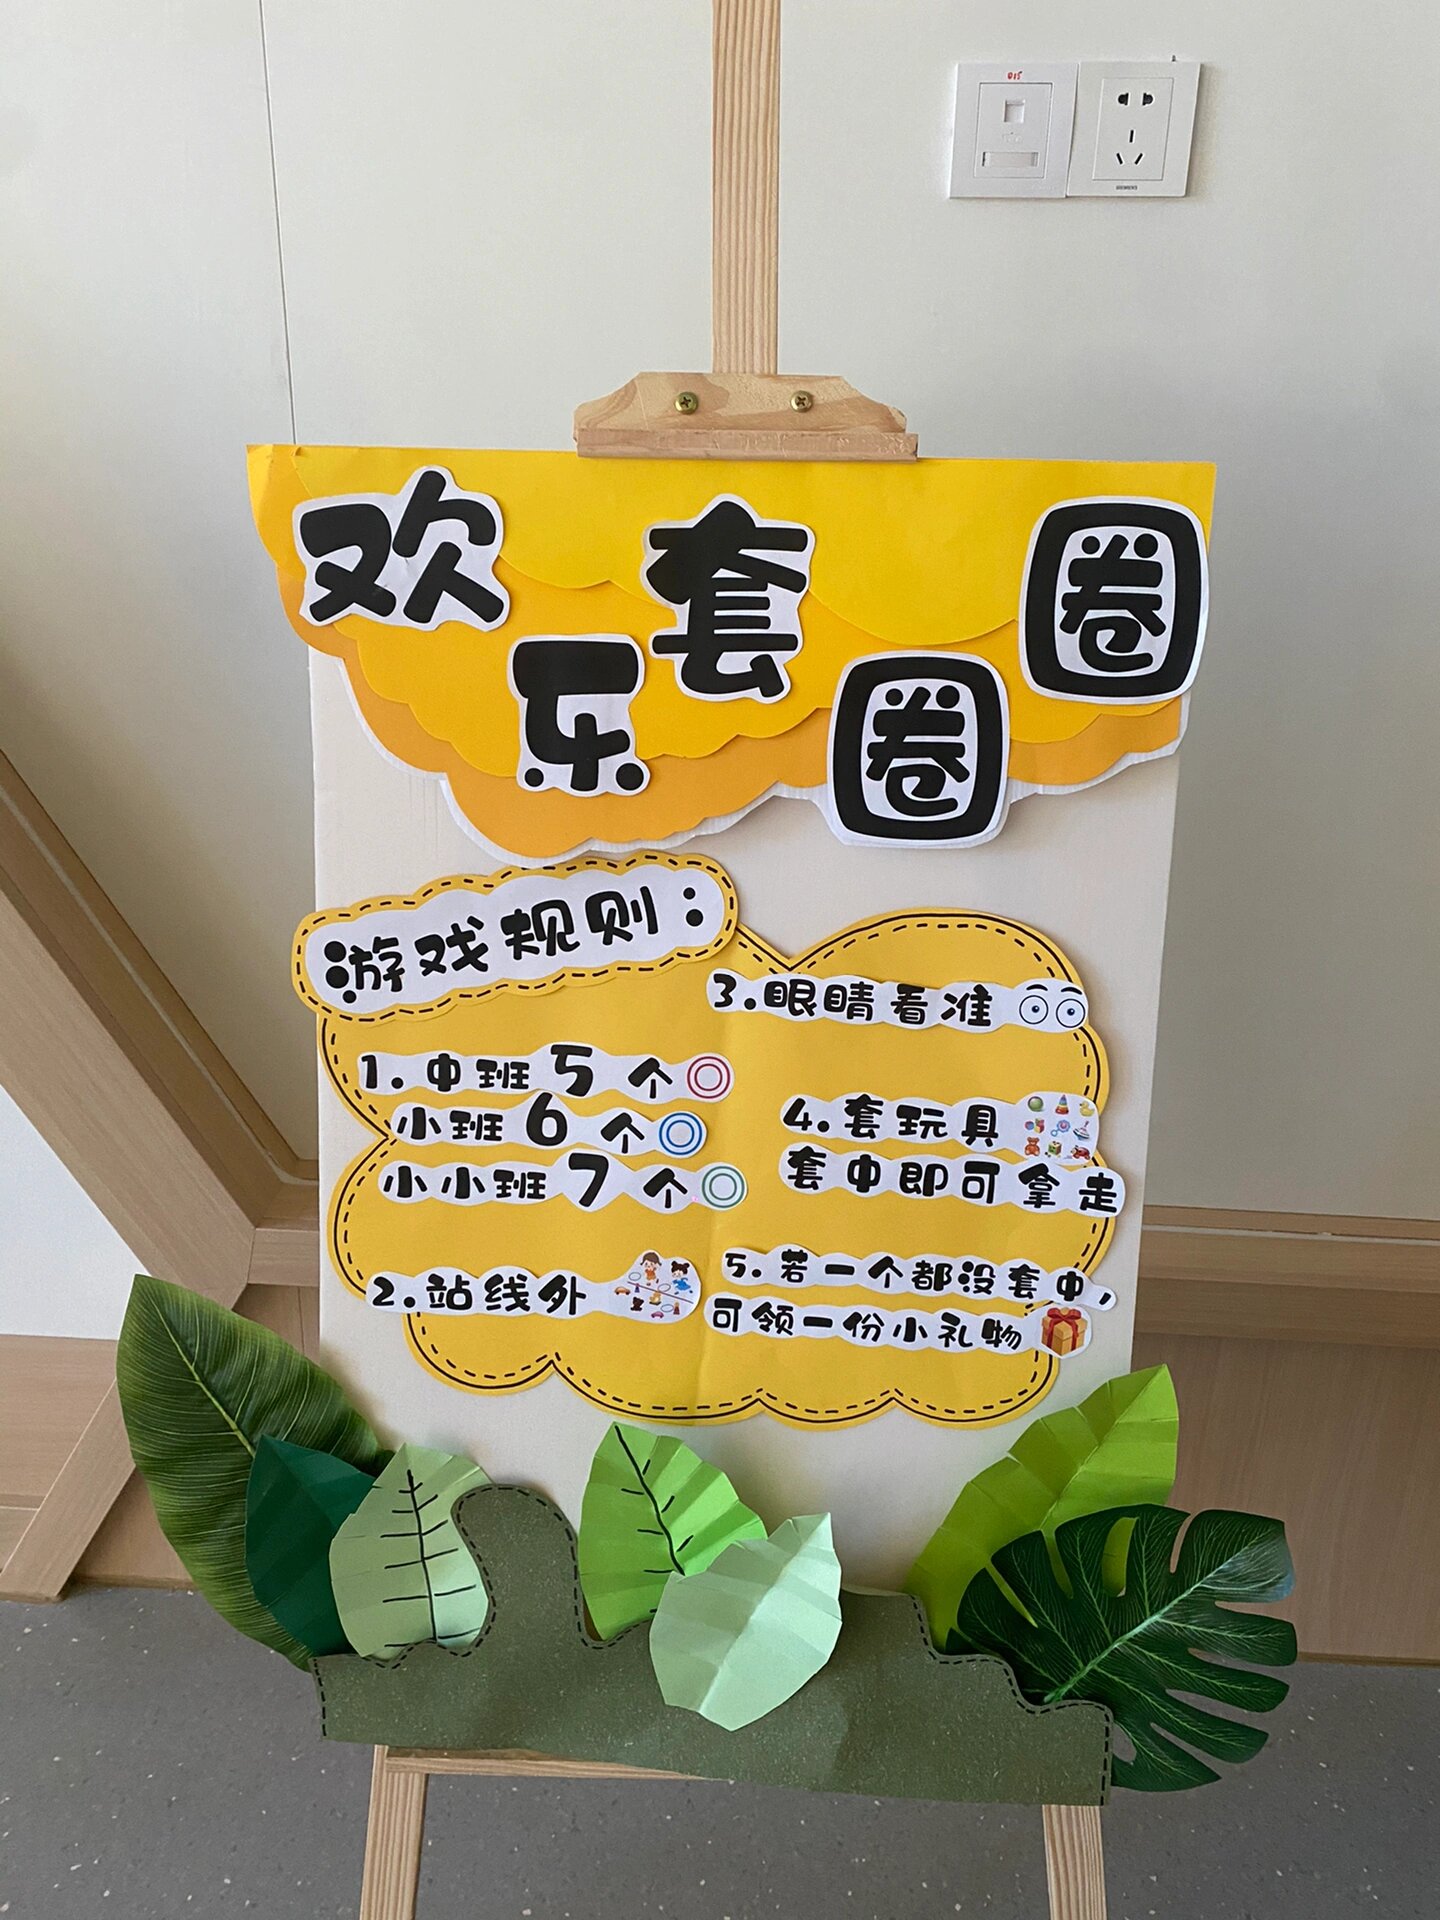 欢乐套圈圈
游戏规则：
1.中班5个
小班6个
小小班7个
2.站线外
3.眼睛看准
4.套玩具
套中即可拿走
5.若一个都没套中，
可领一份小礼物
015
SIEMENS